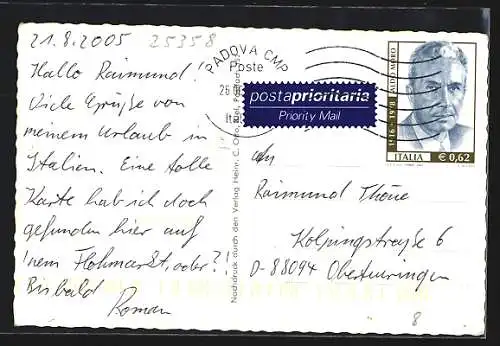 21.8.2005 25358
Hallo Raimund!
Viele Grüße von
meinem Urlaub in
Italien. Eine tolle
Karte hab ich doch
gefunden hier auf
'nem Flohmarkt, oder?!
Bis bald
Roman
PADOVA CMP
Poste
postaprioritaria
Priority Mail
ALDO MORO
1916 - 1978
ITALIA € 0,62
Nachdruck durch den Verlag Heinr. C.
An
Raimund Thöne
Kolpingstraße 6
D-88094 Oberteuringen
8